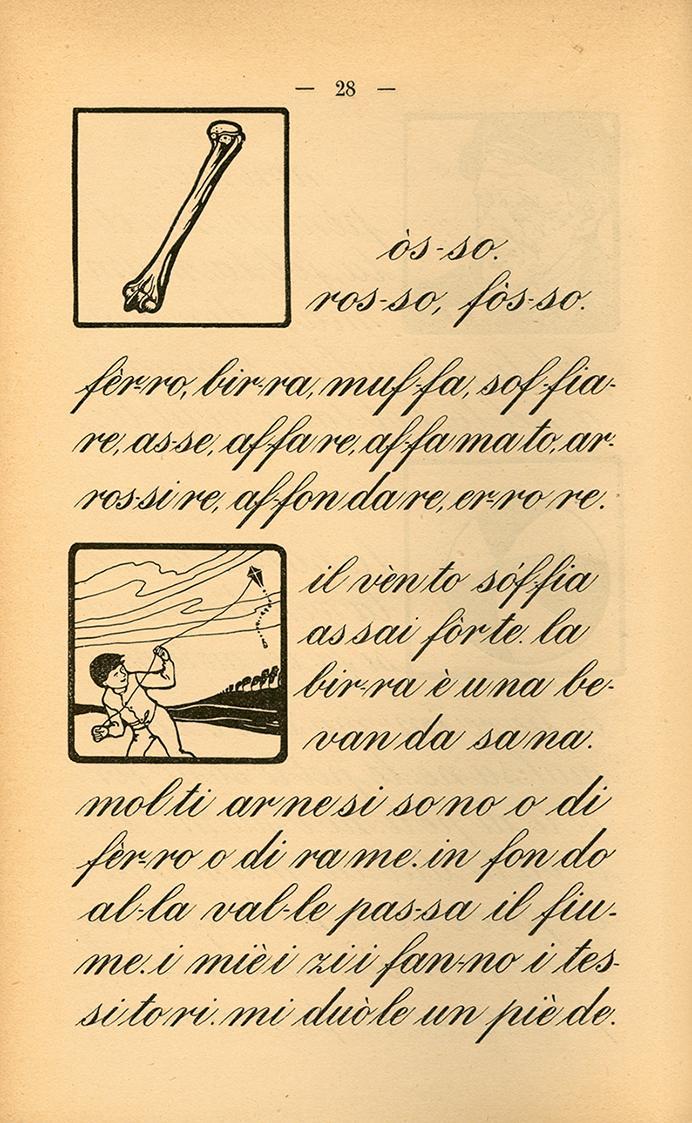 — 28 —
òs-so.
ros-so, fòs-so.
fèr-ro, bir-ra, muf-fa, sof-fia-
re, as-se, af-fa re, af-fa ma to, ar-
ros-si re, af-fon da re, er-ro re.
il vèn to sóf-fia
as sai fòr te. la
bir-ra è u na be-
van da sa na.
mol ti ar ne si so no o di
fèr-ro o di ra me. in fon do
al-la val-le pas-sa il fiu-
me. i miè i zi i fan-no i tes-
si to ri. mi duò le un piè de.